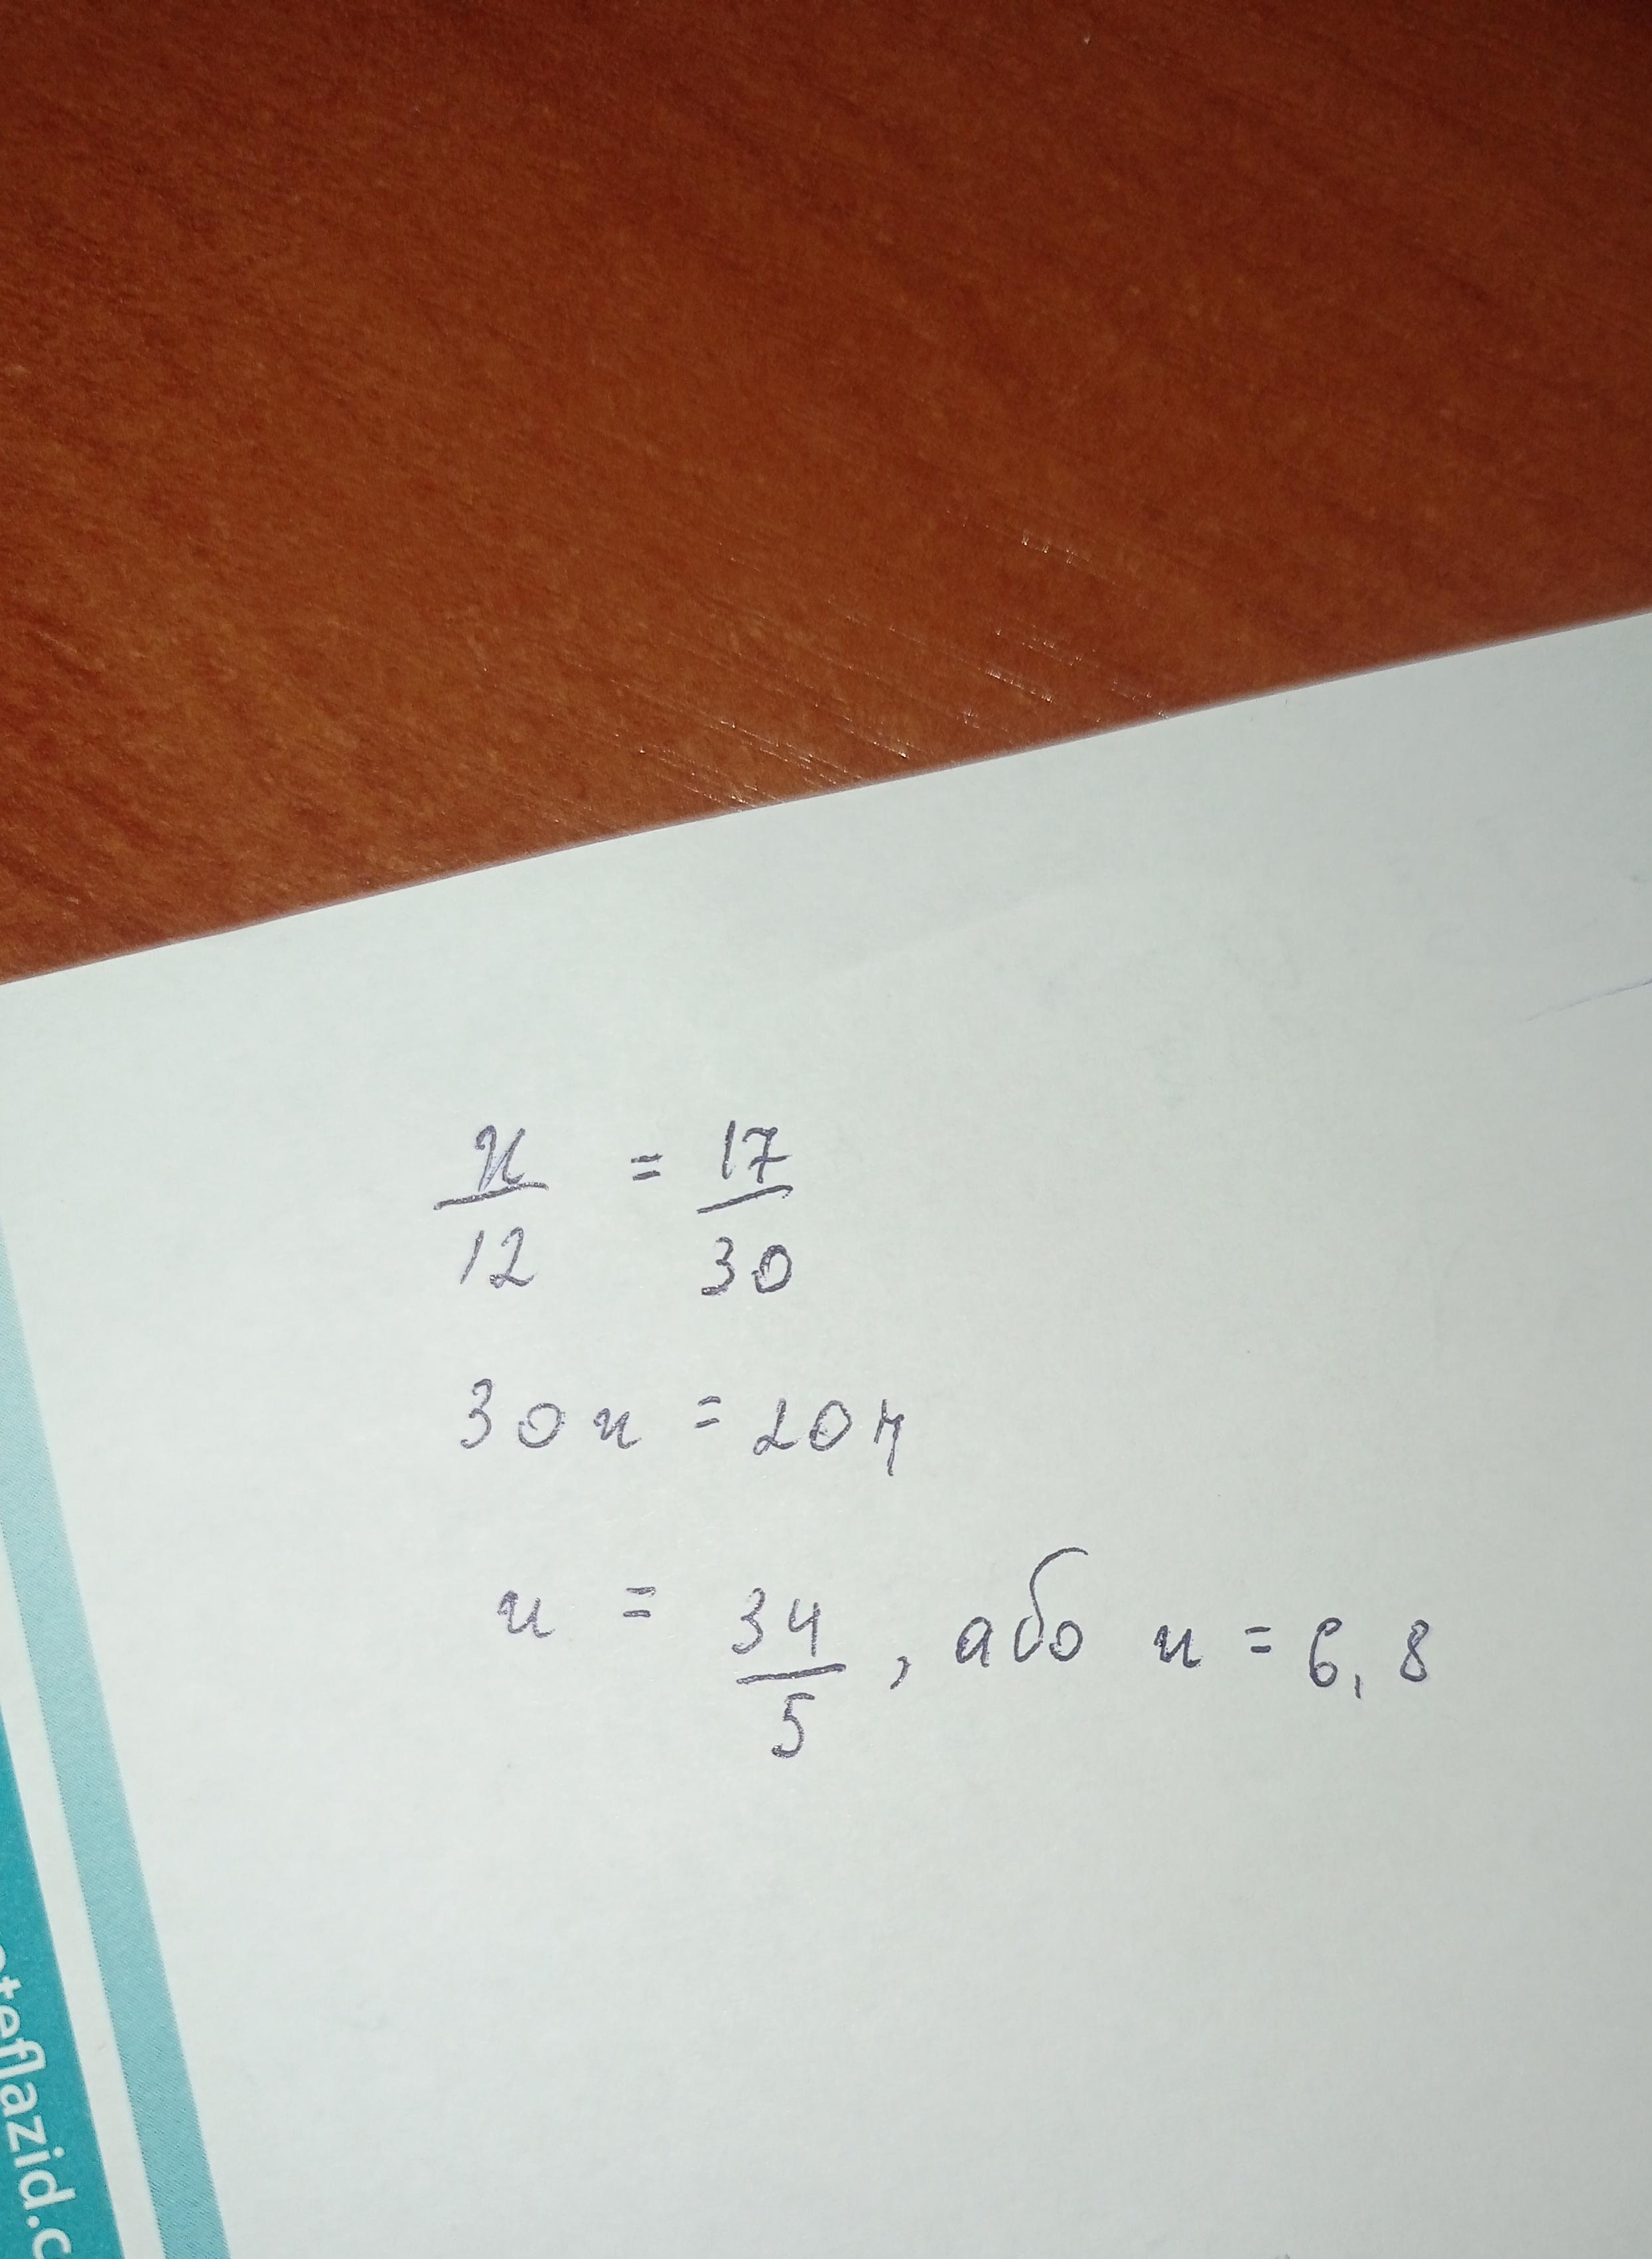 x/12 = 17/30
30x = 204
x = 34/5, або x = 6,8
teflazid.c